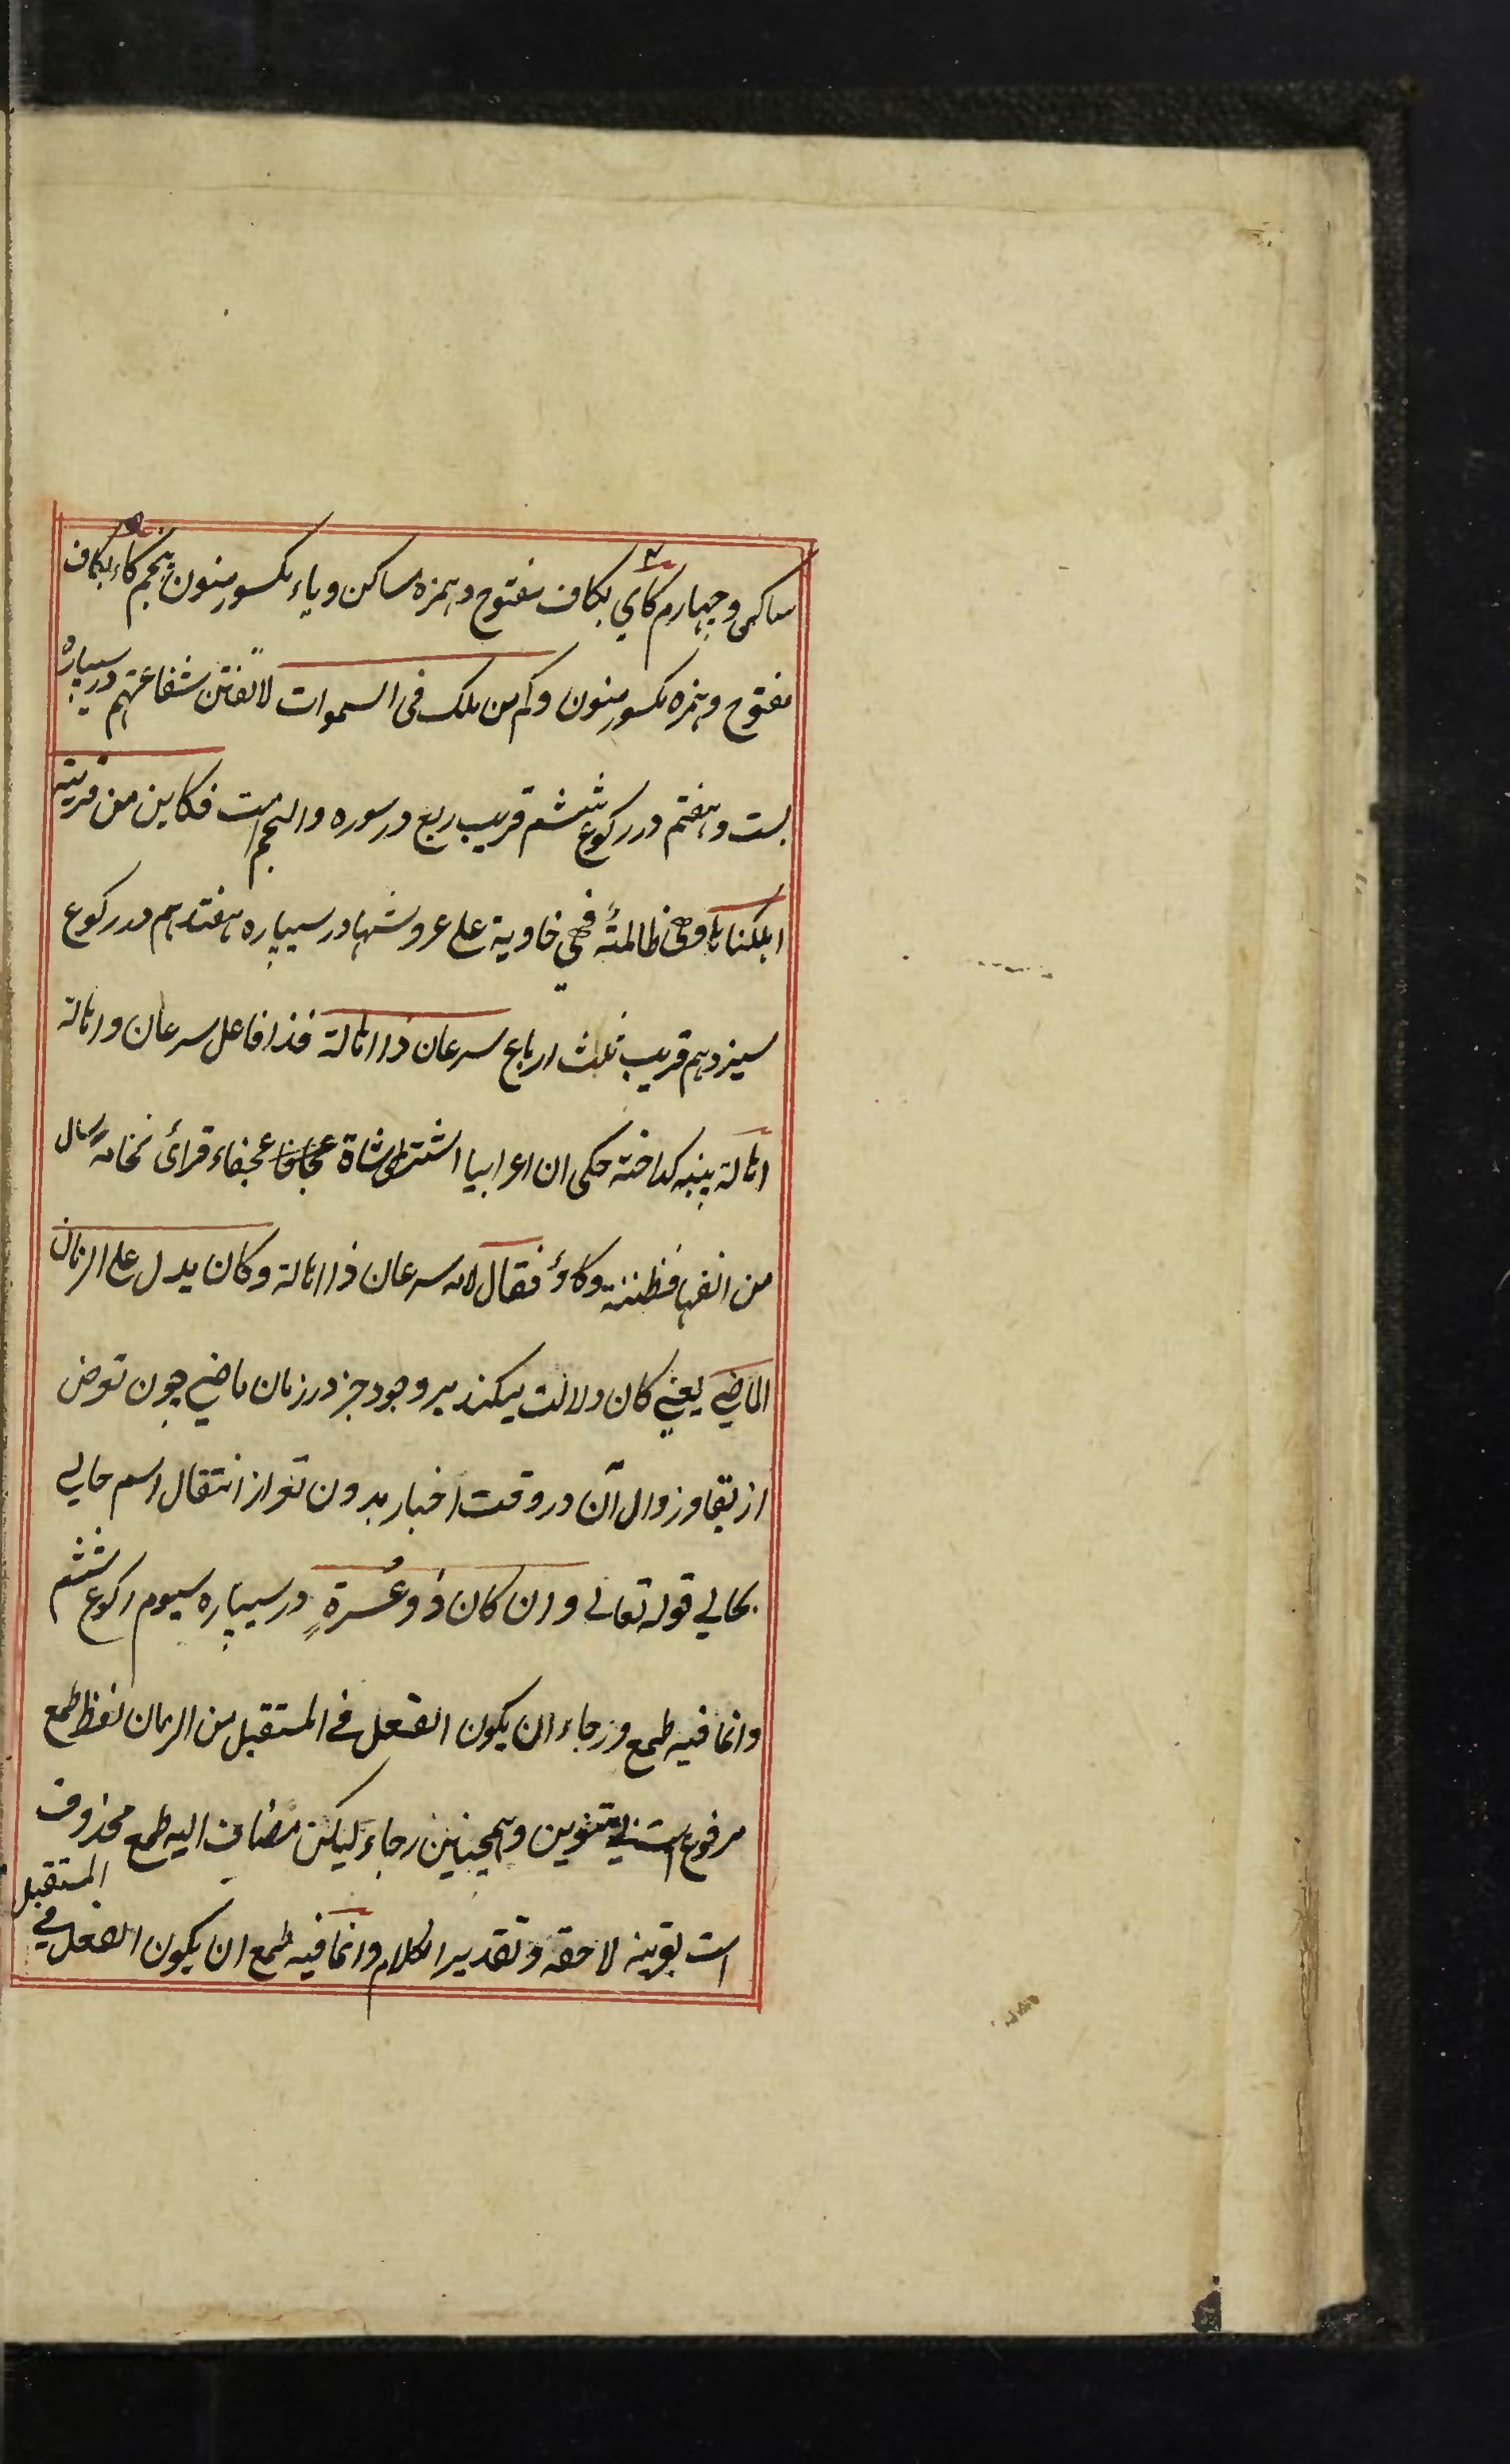 ساکن و چهارم کأي بکاف مفتوح و همزه ساکن و یاء مکسور منون پنجم کاء بکاف
مفتوح و همزه مکسور منون و کم من ملک فی السموات لا تغنن شفاعتهم در سیپاره
بست و هفتم در رکوع ششم قریب ربع در سوره والنجم است فکاین من قریة
اهلکناها وهی ظالمة فهي خاویة علی عروشها در سیپاره هفتدهم در رکوع
سیزدهم قریب ثلث ارباع سرعان ذا اهالة فذا فاعل سرعان و اهالة
اهالة پنبه کداخته حکی ان اعرابیا اشتری شاة عجافا عجفاء فرأی نخامه سال
من انفها فظننه وکاؤ فقال لامه سرعان ذا اهالة و کان یدل علی الزمان
الماضي یعني کان دلالت میکند بر وجود جز در زمان ماضي چون تعرض
از بقا و زوال آن در وقت اخبار بدون تعر از انتقال اسم حالي
بحالي قوله تعالی وان کان ذو عُسرةٍ در سیپاره سیوم رکوع ششم
وانما فیه طمع و رجاء ان یکون الفعل في المستقبل من الزمان لفظ طمع
مرفوع است بي تنوین و همچنین رجاء لیکن مضاف الیه طمع محذوف
است بقرینه لاحقه و تقدیر الکلام وانما فیه طمع ان یکون الفعل في المستقبل